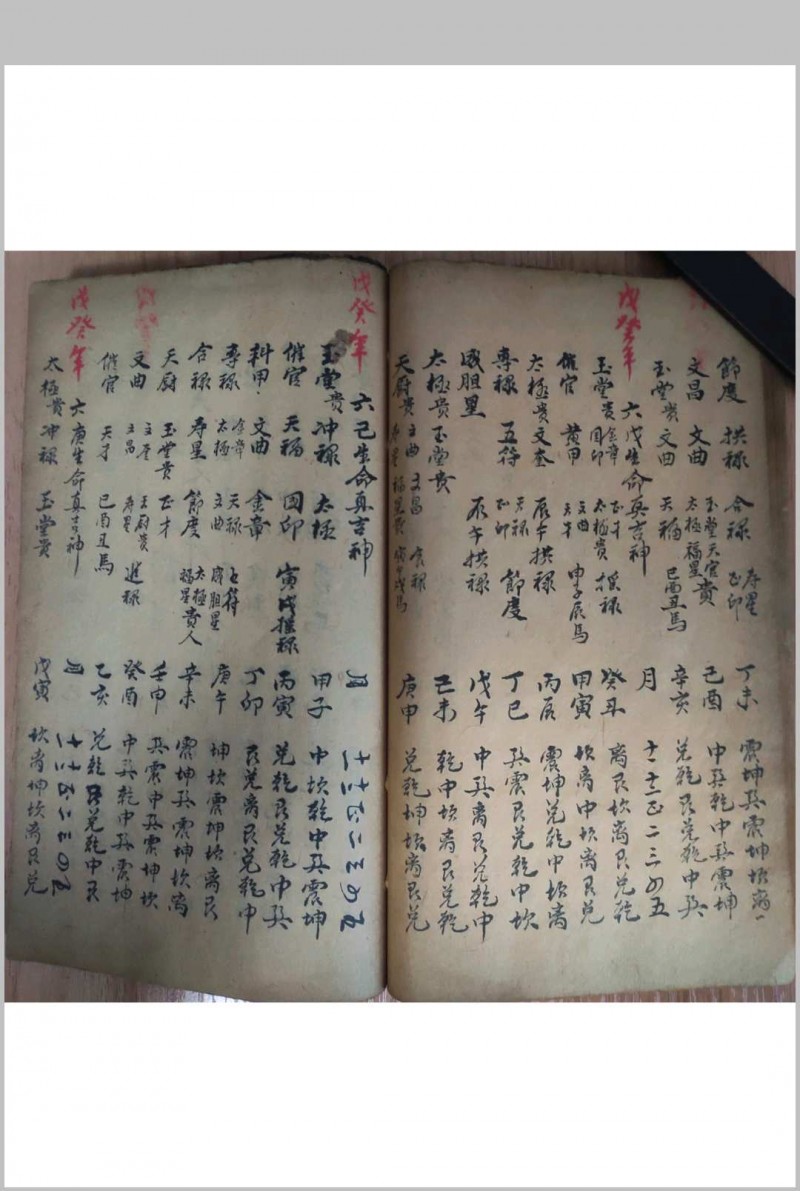 節度 拱禄 合禄 寿星 正印 丁未 震坤巽震坤坎离
文昌 文曲 玉堂天官貴 太極福星 己酉 中巽乾中巽震坤
玉堂貴 文曲 天福 巳酉丑馬 辛亥 兑乾艮兑乾中巽
戊癸年 六戊生命真吉神 月 十一 十二 正 二 三 四 五
玉堂貴 金章 国印 正才 太極貴 拱禄 癸丑 离艮坎离艮兑乾
催官 黄甲 文曲 申子辰馬 甲寅 坎离中坎离艮兑
太極貴 文奎 辰午拱禄 丙辰 震坤兑乾中坎离
專禄 五符 天禄 正印 節度 丁巳 巽震艮兑乾中坎
威胆星 辰午拱禄 戊午 中巽离艮兑乾中
太極貴 玉堂貴 己未 乾中坎离艮兑乾
天厨貴 文曲 文昌 食禄 寿星 福星貴 寅午戌馬 庚申 兑乾坤坎离艮兑
戊癸年 六己生命真吉神 月 十一 十二 正 二 三 四 五
玉堂貴 冲禄 太極 甲子 中坎乾中巽震坤
催官 天福 国印 寅戌拱禄 丙寅 兑乾艮兑乾中巽
科甲 文曲 金章 丁卯 艮兑离艮兑乾中
專禄 金章 太極 天禄 文曲 七符 威胆星 庚午 坤坎震坤坎离艮
合禄 寿星 節度 太極 福星貴人 辛未 震坤巽震坤坎离
天厨 玉堂貴 正才 壬申 巽震中巽震坤坎
文曲 文昌 天厨貴 寿星 進禄 癸酉 中巽乾中巽震坤
催官 天才 巳酉丑馬 乙亥 兑乾艮兑乾中巽
戊癸年 六庚生命真吉神 月 十一 十二 正 二 三 四 五
太極貴 冲禄 玉堂貴 戊寅 坎离坤坎离艮兑